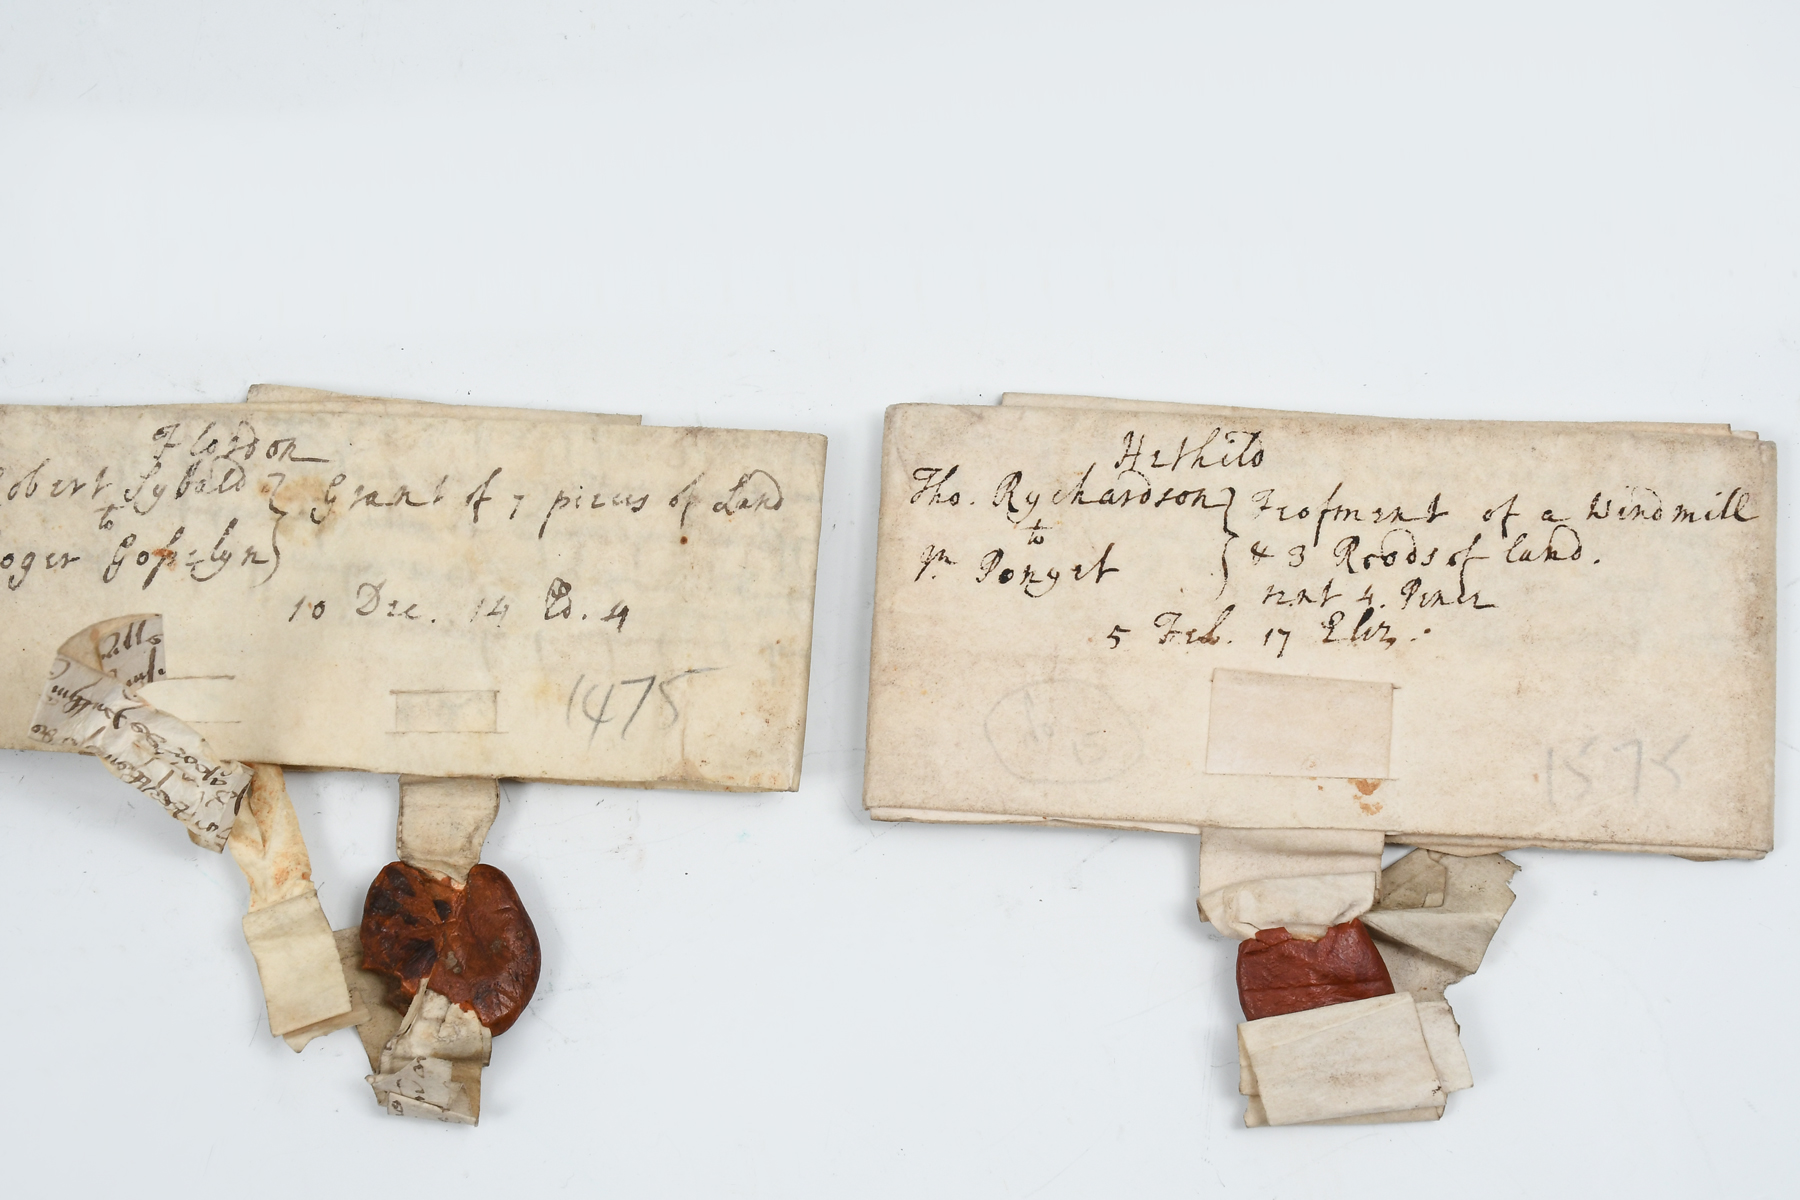 Flordon
obert Sybald
to
oger Gosselyn
Grant of 7 pieces of Land
10 Dec. 14 Ed. 4
1475
Hethild
Tho. Rychardson
to
Ponyet
Feofment of a Windmill
& 3 Roods of land.
rent 4. Pence
5 Feb. 17 Eliz.
1575